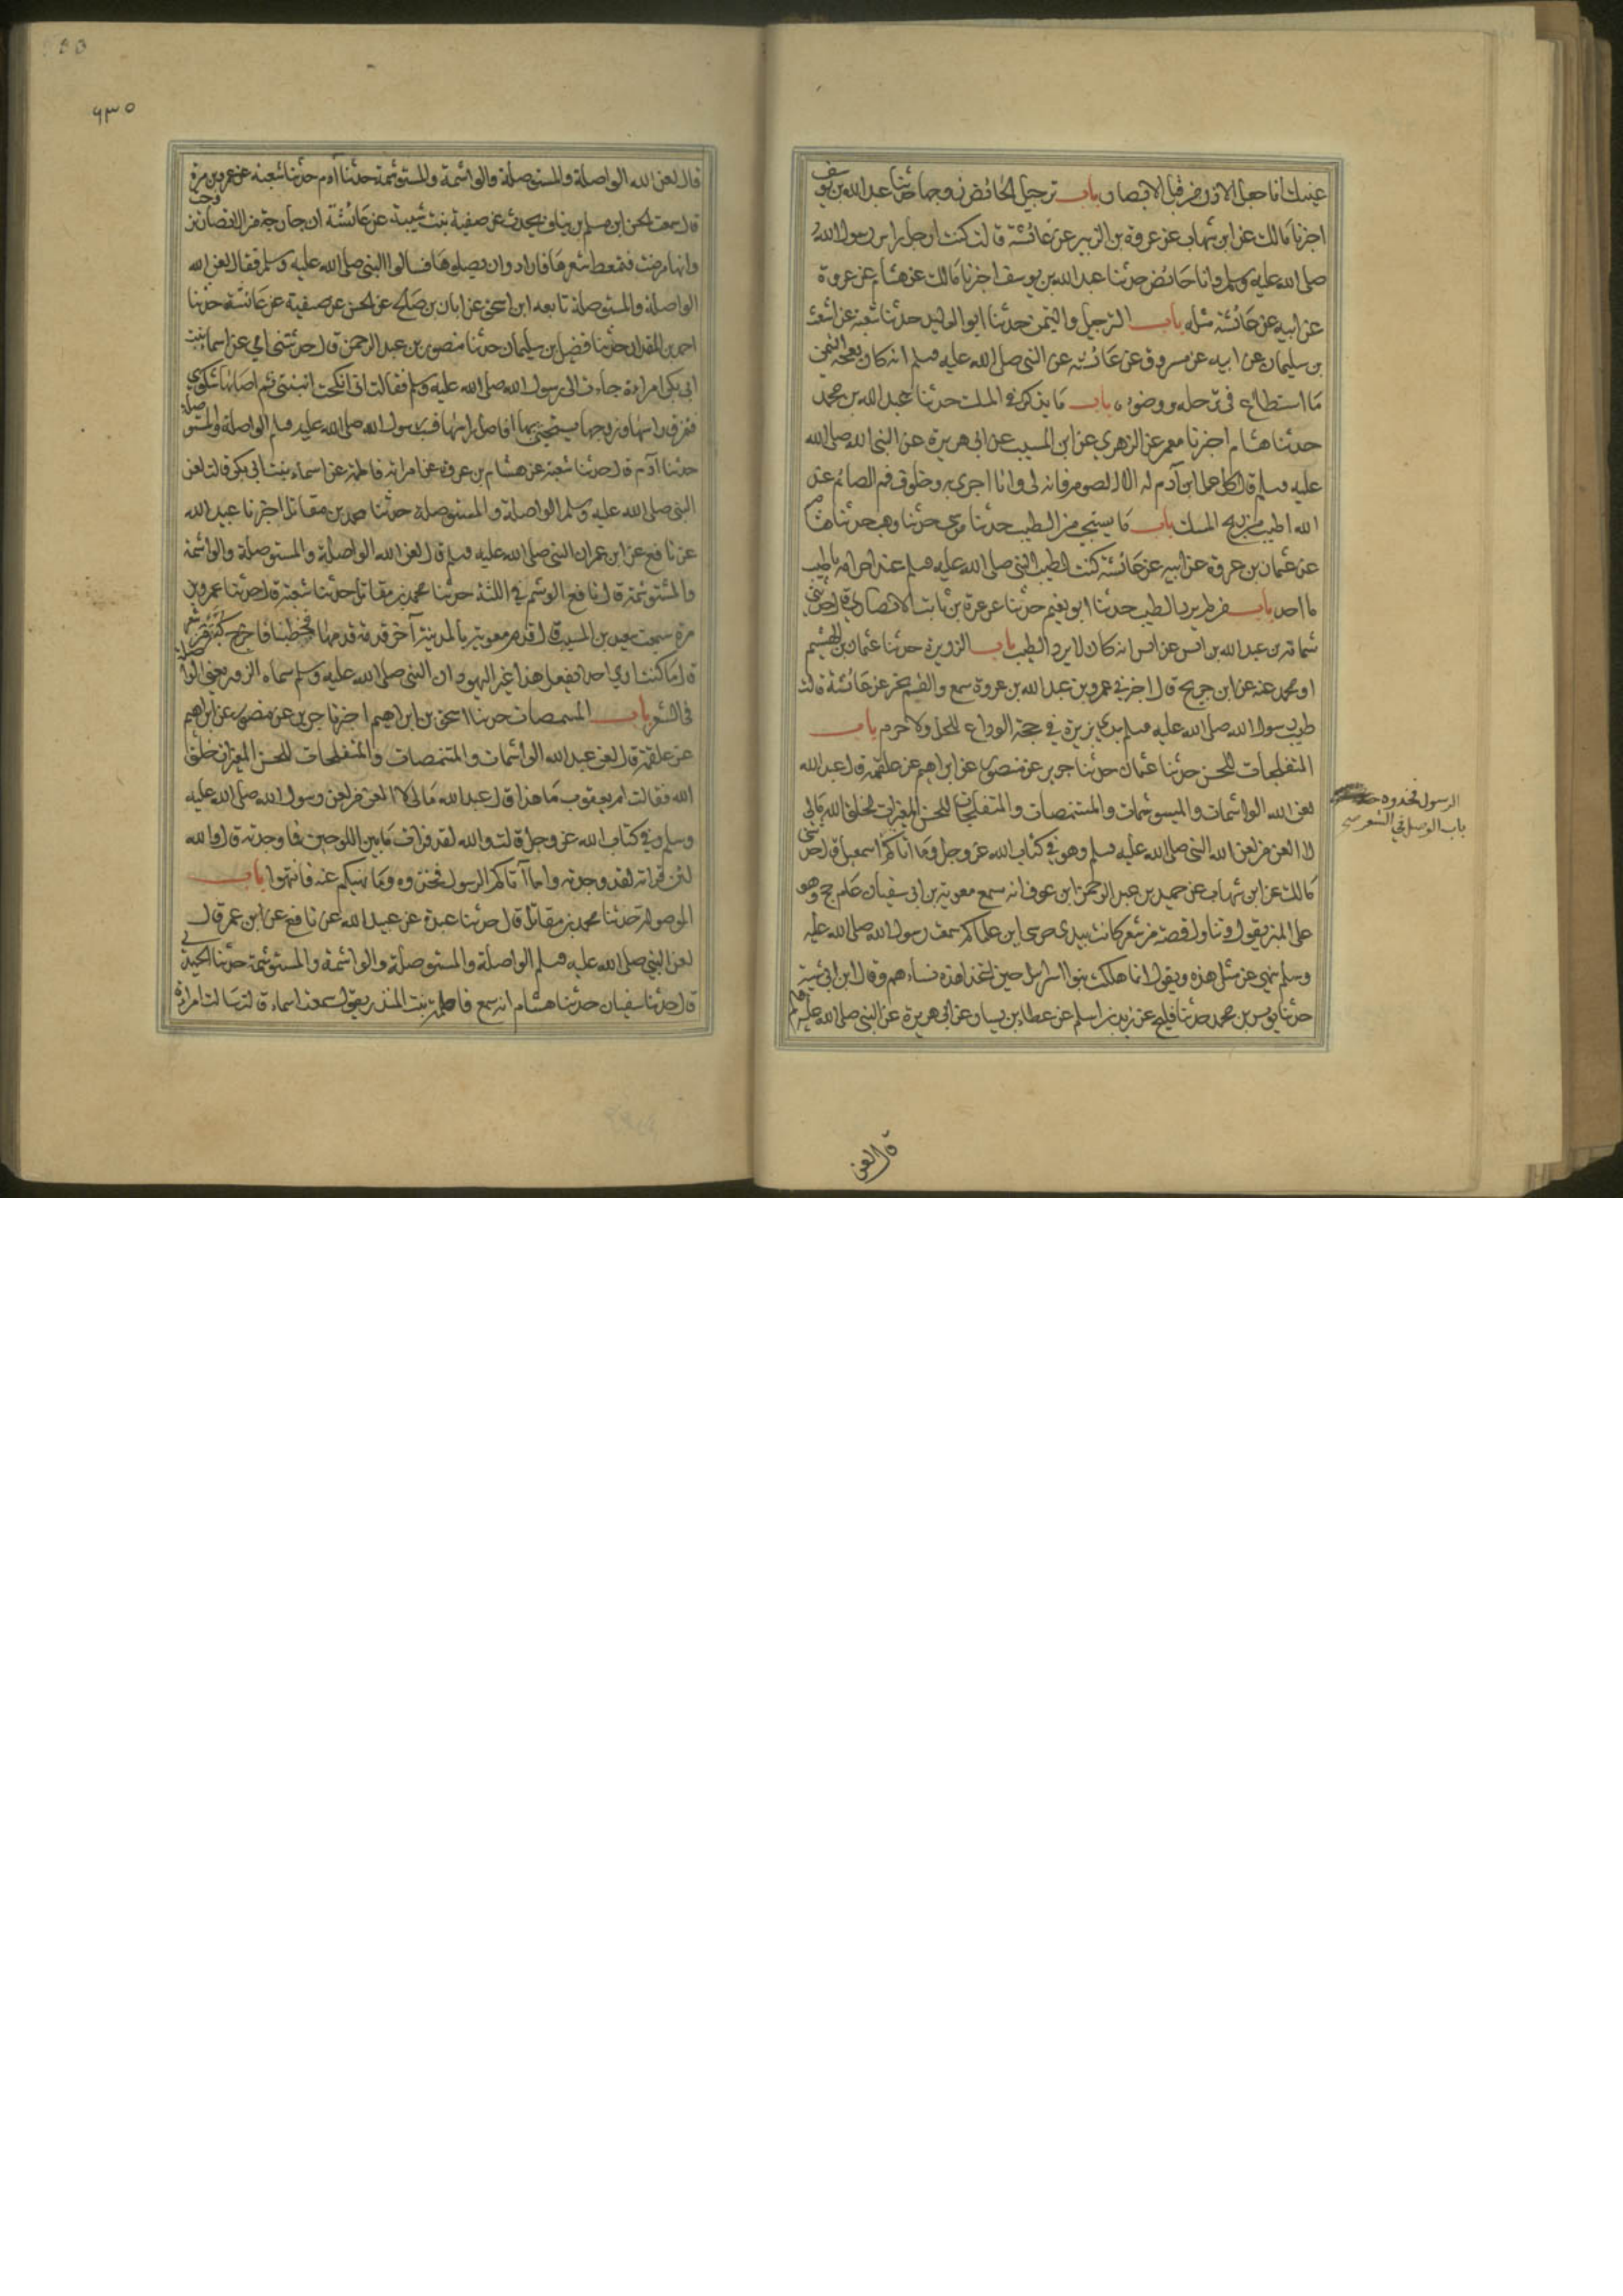 عينيك انما جعل الاذن من قبل الابصار باب ترجيل الحائض زوجها حدثنا عبد الله بن يوسف
اخبرنا مالك عن ابن شهاب عن عروة بن الزبير عن عائشة قالت كنت ارجل راس رسول الله
صلى الله عليه وسلم وانا حائض حدثنا عبد الله بن يوسف اخبرنا مالك عن هشام عن عروة
عن ابيه عن عائشة مثله باب الترجيل والتيمن حدثنا ابو الوليد حدثنا شعبة عن اشعث
بن سليمان عن ابيه عن مسروق عن عائشة عن النبي صلى الله عليه وسلم انه كان يعجبه التيمن
ما استطاع في ترجله ووضوئه باب ما يذكر في المسك حدثنا عبد الله بن محمد
حدثنا هشام اخبرنا معمر عن الزهري عن ابن المسيب عن ابي هريرة عن النبي الله صلى الله
عليه وسلم قال كل عمل ابن آدم له الا الصوم فانه لي وانا اجزي به وخلوق فم الصائم عند
الله اطيب من ريح المسك باب ما يستحب من الطيب حدثنا موسى حدثنا وهب حدثنا هشام
عن عثمان بن عروة عن ابيه عن عائشة كنت اطيب النبي صلى الله عليه وسلم عند احرامه باطيب
ما اجد باب من لم يرد الطيب حدثنا ابو نعيم حدثنا عزرة بن ثابت الانصاري قال حدثني
ثمامة بن عبد الله بن انس عن انس انه كان لا يرد الطيب باب الذريرة حدثنا عثمان بن الهيثم
او محمد عنه عن ابن جريج قال اخبرني عمرو بن عبد الله بن عروة سمع والقسم يخبر عن عائشة قالت
طيبت رسول الله صلى الله عليه وسلم بيدي بزيرة في حجة الوداع للحل والاحرم باب
المتفلجات للحسن حدثنا عثمان حدثنا جرير عن منصور عن ابراهيم عن علقمة قال عبد الله
لعن الله الواشمات والميسوشمات والمستنمصات والمتفلجات للحسن المغيرات لخلق الله ما لي
لا العن من لعن الله النبي صلى الله عليه وسلم وهو في كتاب الله عز وجل وما اتاكم اسمعيل قال حدثني
مالك عن ابن شهاب عن حميد بن عبد الرحمن ابن عوف انه سمع معوية بن ابي سفيان عام حج وهو
على المنبر يقول وتناول قصة من شعر كانت بيدي حرسي اين علماكم سمعت رسول الله صلى الله عليه
وسلم نهى عن مثل هذه ويقول انما هلكت بنوا اسرايل حين اتخذ هذه نساءهم وقال ابن ابي شيبة
حدثنا يونس بن محمد حدثنا فليح عن زيد بن اسلم عن عطاء بن يسار عن ابي هريرة عن النبي صلى الله عليه وسلم
الرسول فخذوه
باب الوصل في الشعر صح
قال لعن
٩٣٥
قال لعن الله الواصلة والمستوصلة والواشمة والمستوشمة حدثنا آدم حدثنا شعبة عن عمرو بن مرة
قال سمعت الحسن ابن مسلم بن يناق يحدث عن صفية بنت شيبة عن عائشة ان جارية من الانصار تزوجت
وانها مرضت فتمعط شعرها فارادوا ان يصلوها فسالوا النبي صلى الله عليه وسلم فقال لعن الله
الواصلة والمستوصلة تابعه ابن اسحق عن ابان بن صالح عن الحسن عن صفية عن عائشة حدثنا
احمد بن المقدام حدثنا فضيل بن سليمان حدثنا منصور بن عبد الرحمن قال حدثتني امي عن اسماء بنت
ابي بكر امراة جاءت الى رسول الله صلى الله عليه وسلم فقالت اني انكحت ابنتي ثم اصابها شكوى
فتمزق راسها وزوجها يستحثني بها افاصل راسها فسب رسول الله صلى الله عليه وسلم الواصلة والمستوصلة
حدثنا آدم قال حدثنا شعبة عن هشام بن عروة عن امراته فاطمة عن اسماء بنت ابي بكر قالت لعن
النبي صلى الله عليه وسلم الواصلة والمستوصلة حدثنا محمد بن مقاتل اخبرنا عبيد الله
عن نافع عن ابن عمر ان النبي صلى الله عليه وسلم قال لعن الله الواصلة والمستوصلة والواشمة
والمستوشمة قال نافع الوشم في اللثة حدثنا محمد بن مقاتل حدثنا شعبة قال حدثنا عمرو بن
مرة سمعت سعيد بن المسيب قال قدم معوية بالمدينة آخر قدمة قدمها فخطبنا فاخرج كبة من شعر
قال ما كنت ارى احدا يفعل هذا غير اليهود ان النبي صلى الله عليه وسلم سماه الزور يعني الواصلة
في الشعر باب المتنمصات حدثنا اسحق بن ابراهيم اخبرنا جرير عن منصور عن ابراهيم
عن علقمة قال لعن عبد الله الواشمات والمتنمصات والمتفلجات للحسن المغيرات خلق
الله فقالت ام يعقوب ما هذا قال عبد الله ما لي لا العن من لعن رسول الله صلى الله عليه
وسلم وفي كتاب الله عز وجل قالت والله لقد قرات ما بين اللوحين فما وجدته قال والله
لئن قراته لقد وجدته واما آتاكم الرسول فخذوه وما نهيكم عنه فانتهوا باب
الموصولة حدثنا محمد بن مقاتل قال حدثنا عبدة عن عبيد الله عن نافع عن ابن عمر قال
لعن النبي صلى الله عليه وسلم الواصلة والمستوصلة والواشمة والمستوشمة حدثنا الحميدي
قال حدثنا سفيان حدثنا هشام انه سمع فاطمة بنت المنذر يقول سمعت اسماء قالت سالت امراة